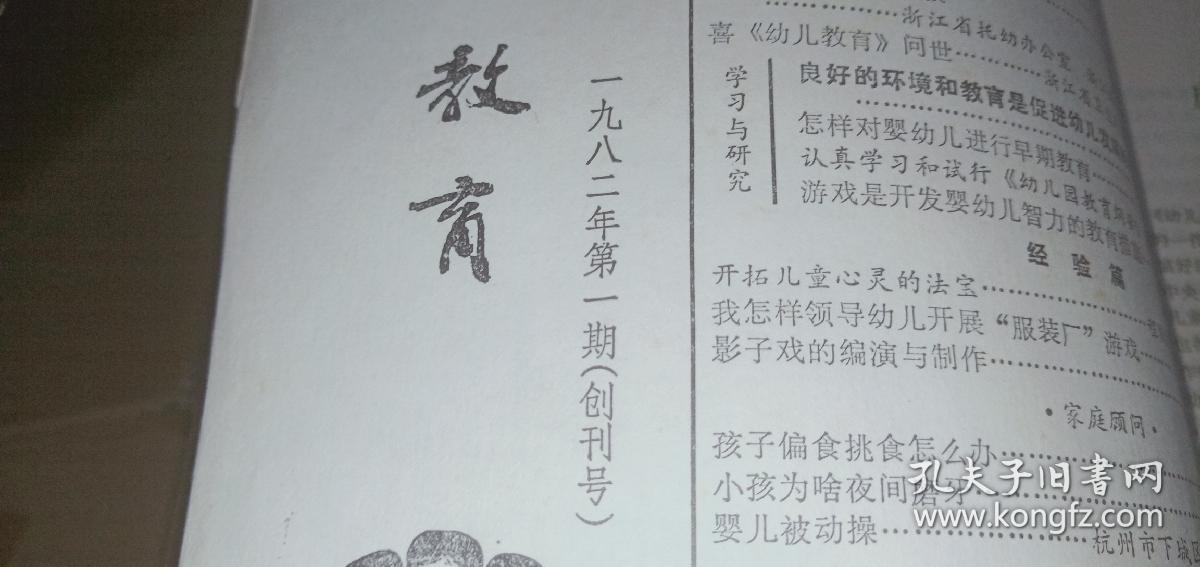 教育
一九八二年第一期（创刊号）
浙江省托幼办公室
喜《幼儿教育》问世
浙江省
学习与研究
良好的环境和教育是促进幼儿
怎样对婴幼儿进行早期教育
认真学习和试行《幼儿园教育纲要
游戏是开发婴幼儿智力的教育
经验篇
开拓儿童心灵的法宝
我怎样领导幼儿开展“服装厂”游戏
影子戏的编演与制作
·家庭顾问·
孩子偏食挑食怎么办
小孩为啥夜间磨牙
婴儿被动操
杭州市下城区
孔夫子旧书网
www.kongfz.com